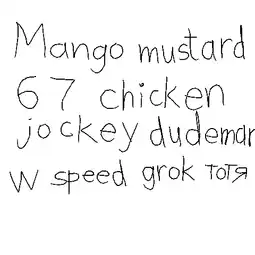 Mango mustard
67 chicken
jockey dudeman
W speed grok тотя